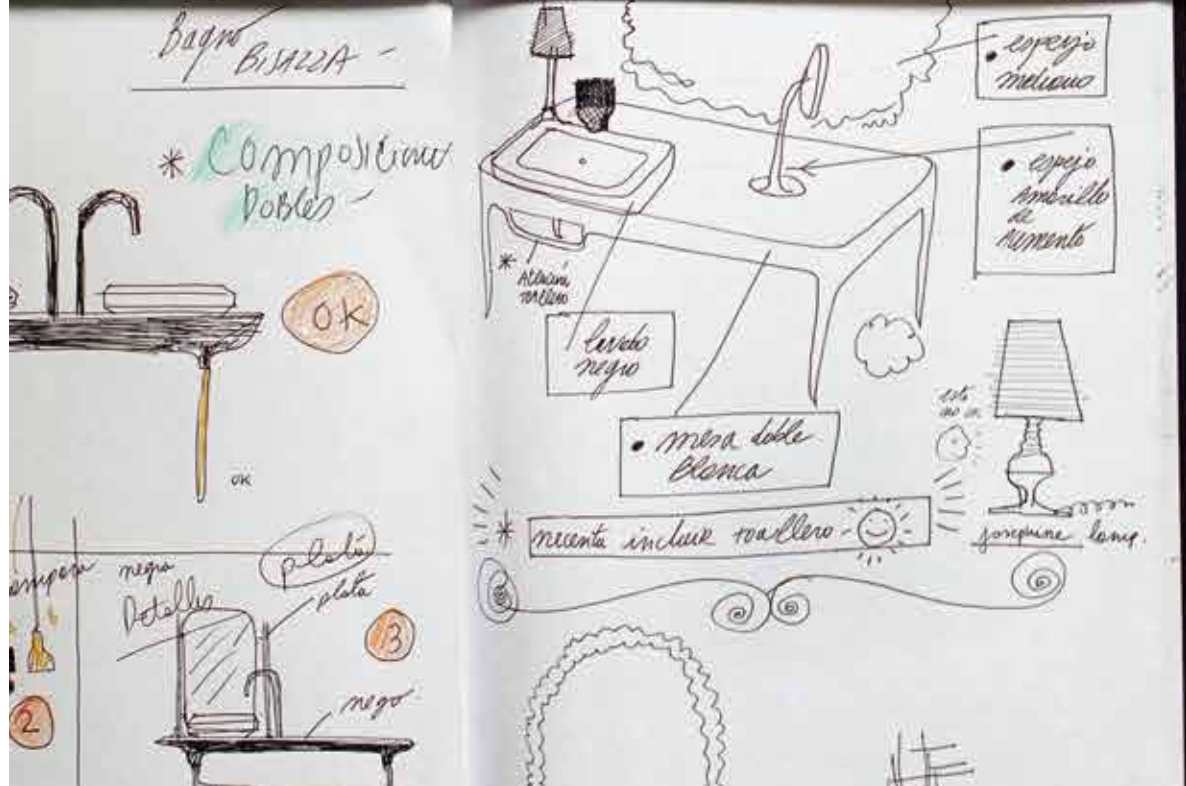 Bagno
BISAZZA -
* Composicion
Dobles -
OK
OK
negro
Detalles
plata
plata
3
negro.
2
• espejo
mediano
• espejo
Amarillo
de
Aumento
*
toallero
lavabo
negro
• mesa doble
Blanca
* necesita incluir toallero -
josephine lamp.